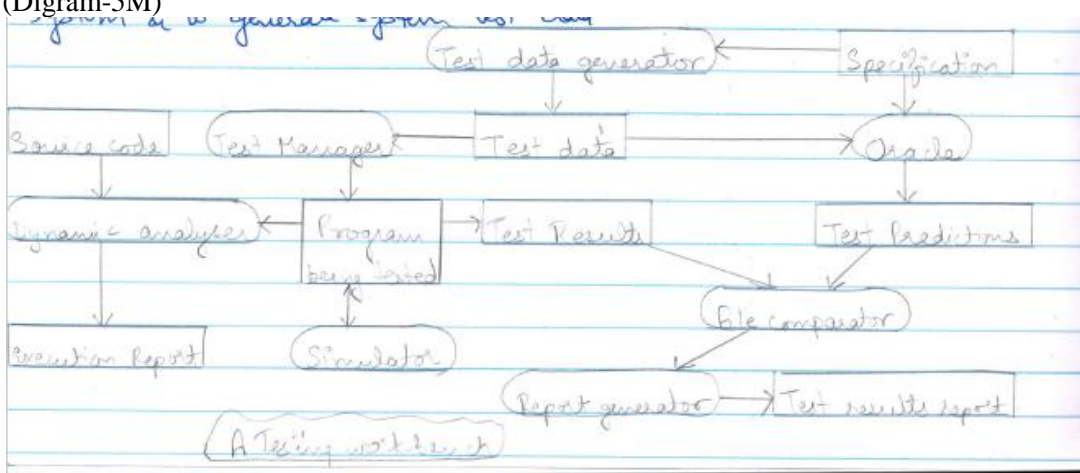 (Digram-5M)
system & to generate system test data
Test data generator
Specification
Source code
Test Manager
Test data
Oracle
Dynamic analyser
Program
being tested
Test Results
Test Predictions
File comparator
Execution Report
Simulator
Report generator
Test results report
A Testing workbench